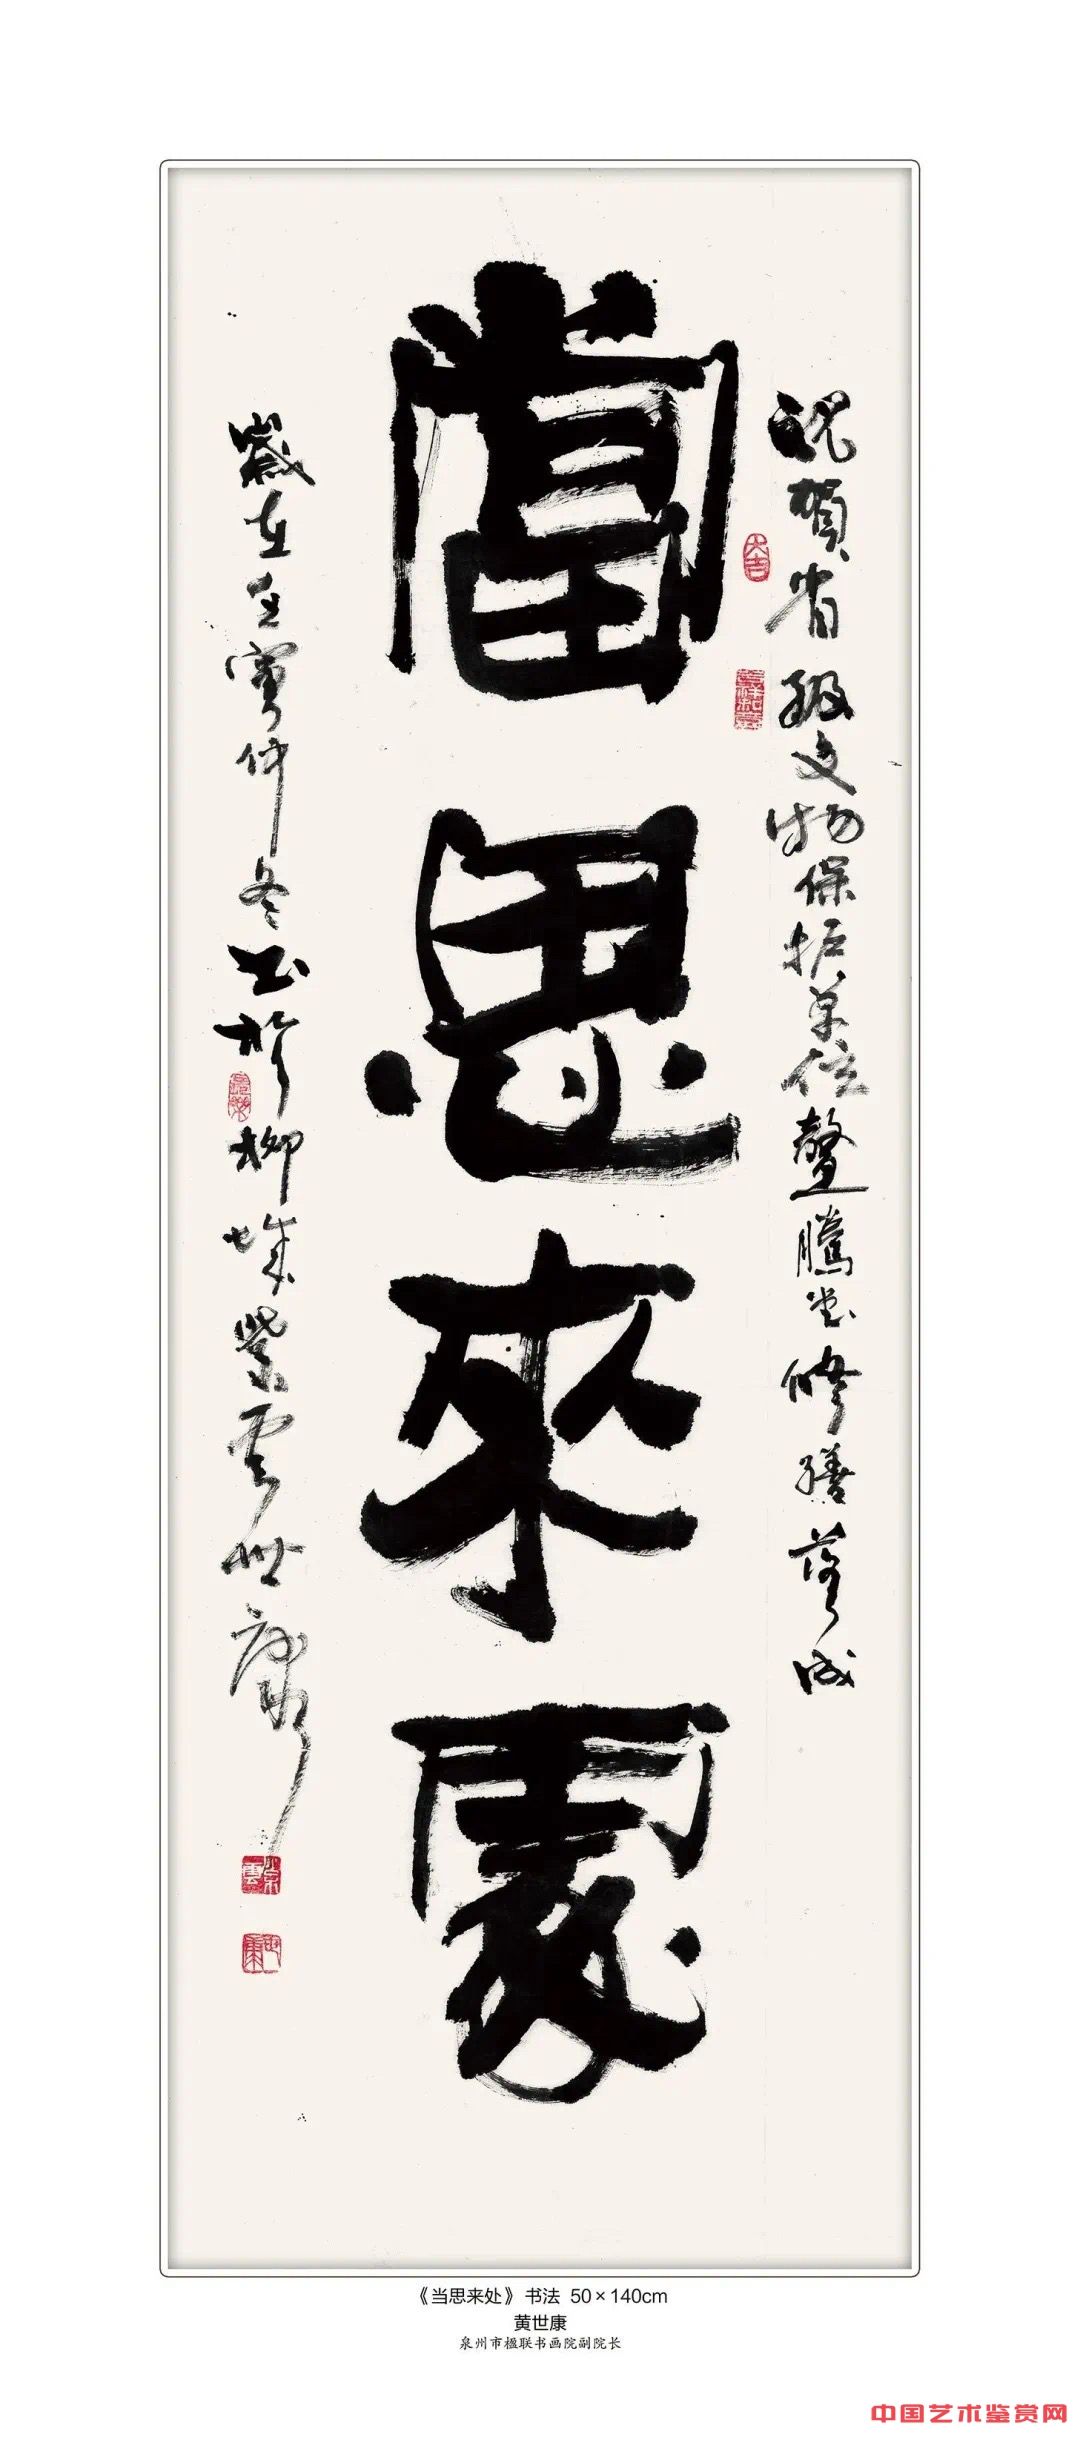 祝贺省级文物保护单位鳌腾堂修缮落成
當思來處
歲在壬寅仲冬书於柳城紫云世康
大吉
紫雲
世康
《当思来处》 书法 50×140cm
黄世康
泉州市楹联书画院副院长
中国艺术鉴赏网